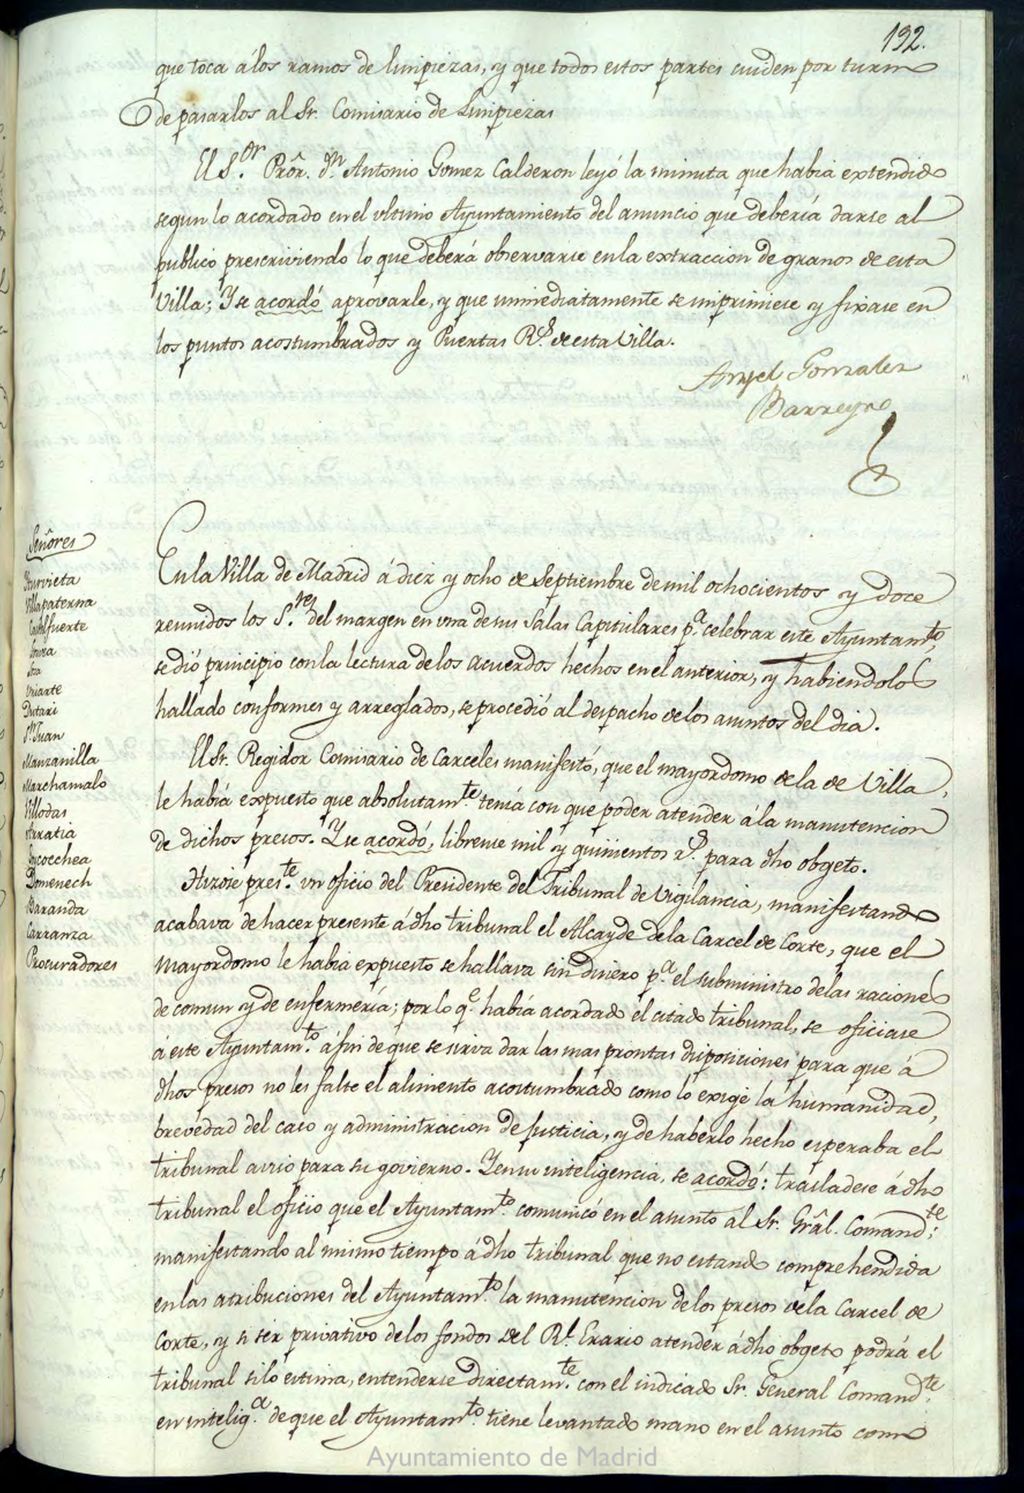 192.
que toca á los ramos de limpiezas, y que todos estos partes cuiden por turno
de pasarlos al Sr. Comisario de Limpiezas
El S.or Prôr. Dn. Antonio Gomez Calderon leyó la minuta que habia extendido
segun lo acordado en el ultimo Ayuntamiento del anuncio que debería darse al
publico prescriviendo lo que deberá observarse en la extraccion de granos de esta
Villa; Y se acordó aprovarle, y que inmediatamente se imprimiese y fixase en
los puntos acostumbrados y Puertas R.s de esta Villa.
Angel Gonzalez
Barreyro
Señores
Villapaterna
Castelfuerte
Uriarte
Dutari
Sn. Juan
Manzanilla
Marchamalo
Villodas
Arratia
Goycoechea
Domenech
Baranda
Carranza
Procuradores
En la Villa de Madrid á diez y ocho de Septiembre de mil ochocientos y doce
reunidos los S.res del margen en una de sus Salas Capitulares p.a celebrar este Ayuntam.to,
se dió principio con la lectura de los acuerdos hechos en el anterior, y habiendolos
hallado conformes y arreglados, se procedió al despacho de los asuntos del dia.
El Sr. Regidor Comisario de Carceles manifestó, que el mayordomo de la de Villa,
le habia expuesto que absolutam.te tenia con que poder atender á la manutencion
de dichos presos. Y se acordó, librense mil y quinientos r.s para dho obgeto.
Hizose pres.te un oficio del Presidente del Tribunal de Vigilancia, manifestando
acabava de hacer presente á dho tribunal el Alcayde de la Carcel de Corte, que el
Mayordomo le habia expuesto se hallava sin dinero p.a el subministro de las raciones
de comun y de enfermería; por lo q.e habia acordado el citado tribunal, se oficiase
á este Ayuntam.to á fin de que se sirva dar las mas prontas disposiciones para que á
dhos presos no les falte el alimento acostumbrado como lo exige la humanidad,
brevedad del caso y administracion de Justicia, y de haberlo hecho esperaba el
tribunal aviso para su govierno. Y en su inteligencia, se acordó: trasladese á dho
tribunal el oficio que el Ayuntam.to comunicó en el asunto al Sr. Grâl. Comand.te;
manifestando al mismo tiempo á dho tribunal que no estando comprehendida
en las atribuciones del Ayuntam.to la manutencion de los presos de la Carcel de
Corte, y si ser privativo de los fondos del R.l Erario atender á dho obgeto podrá el
tribunal si lo estima, entenderse directam.te con el indicado Sr. General Comand.te
en intelig.a de que el Ayuntam.to tiene levantado mano en el asunto como
Ayuntamiento de Madrid